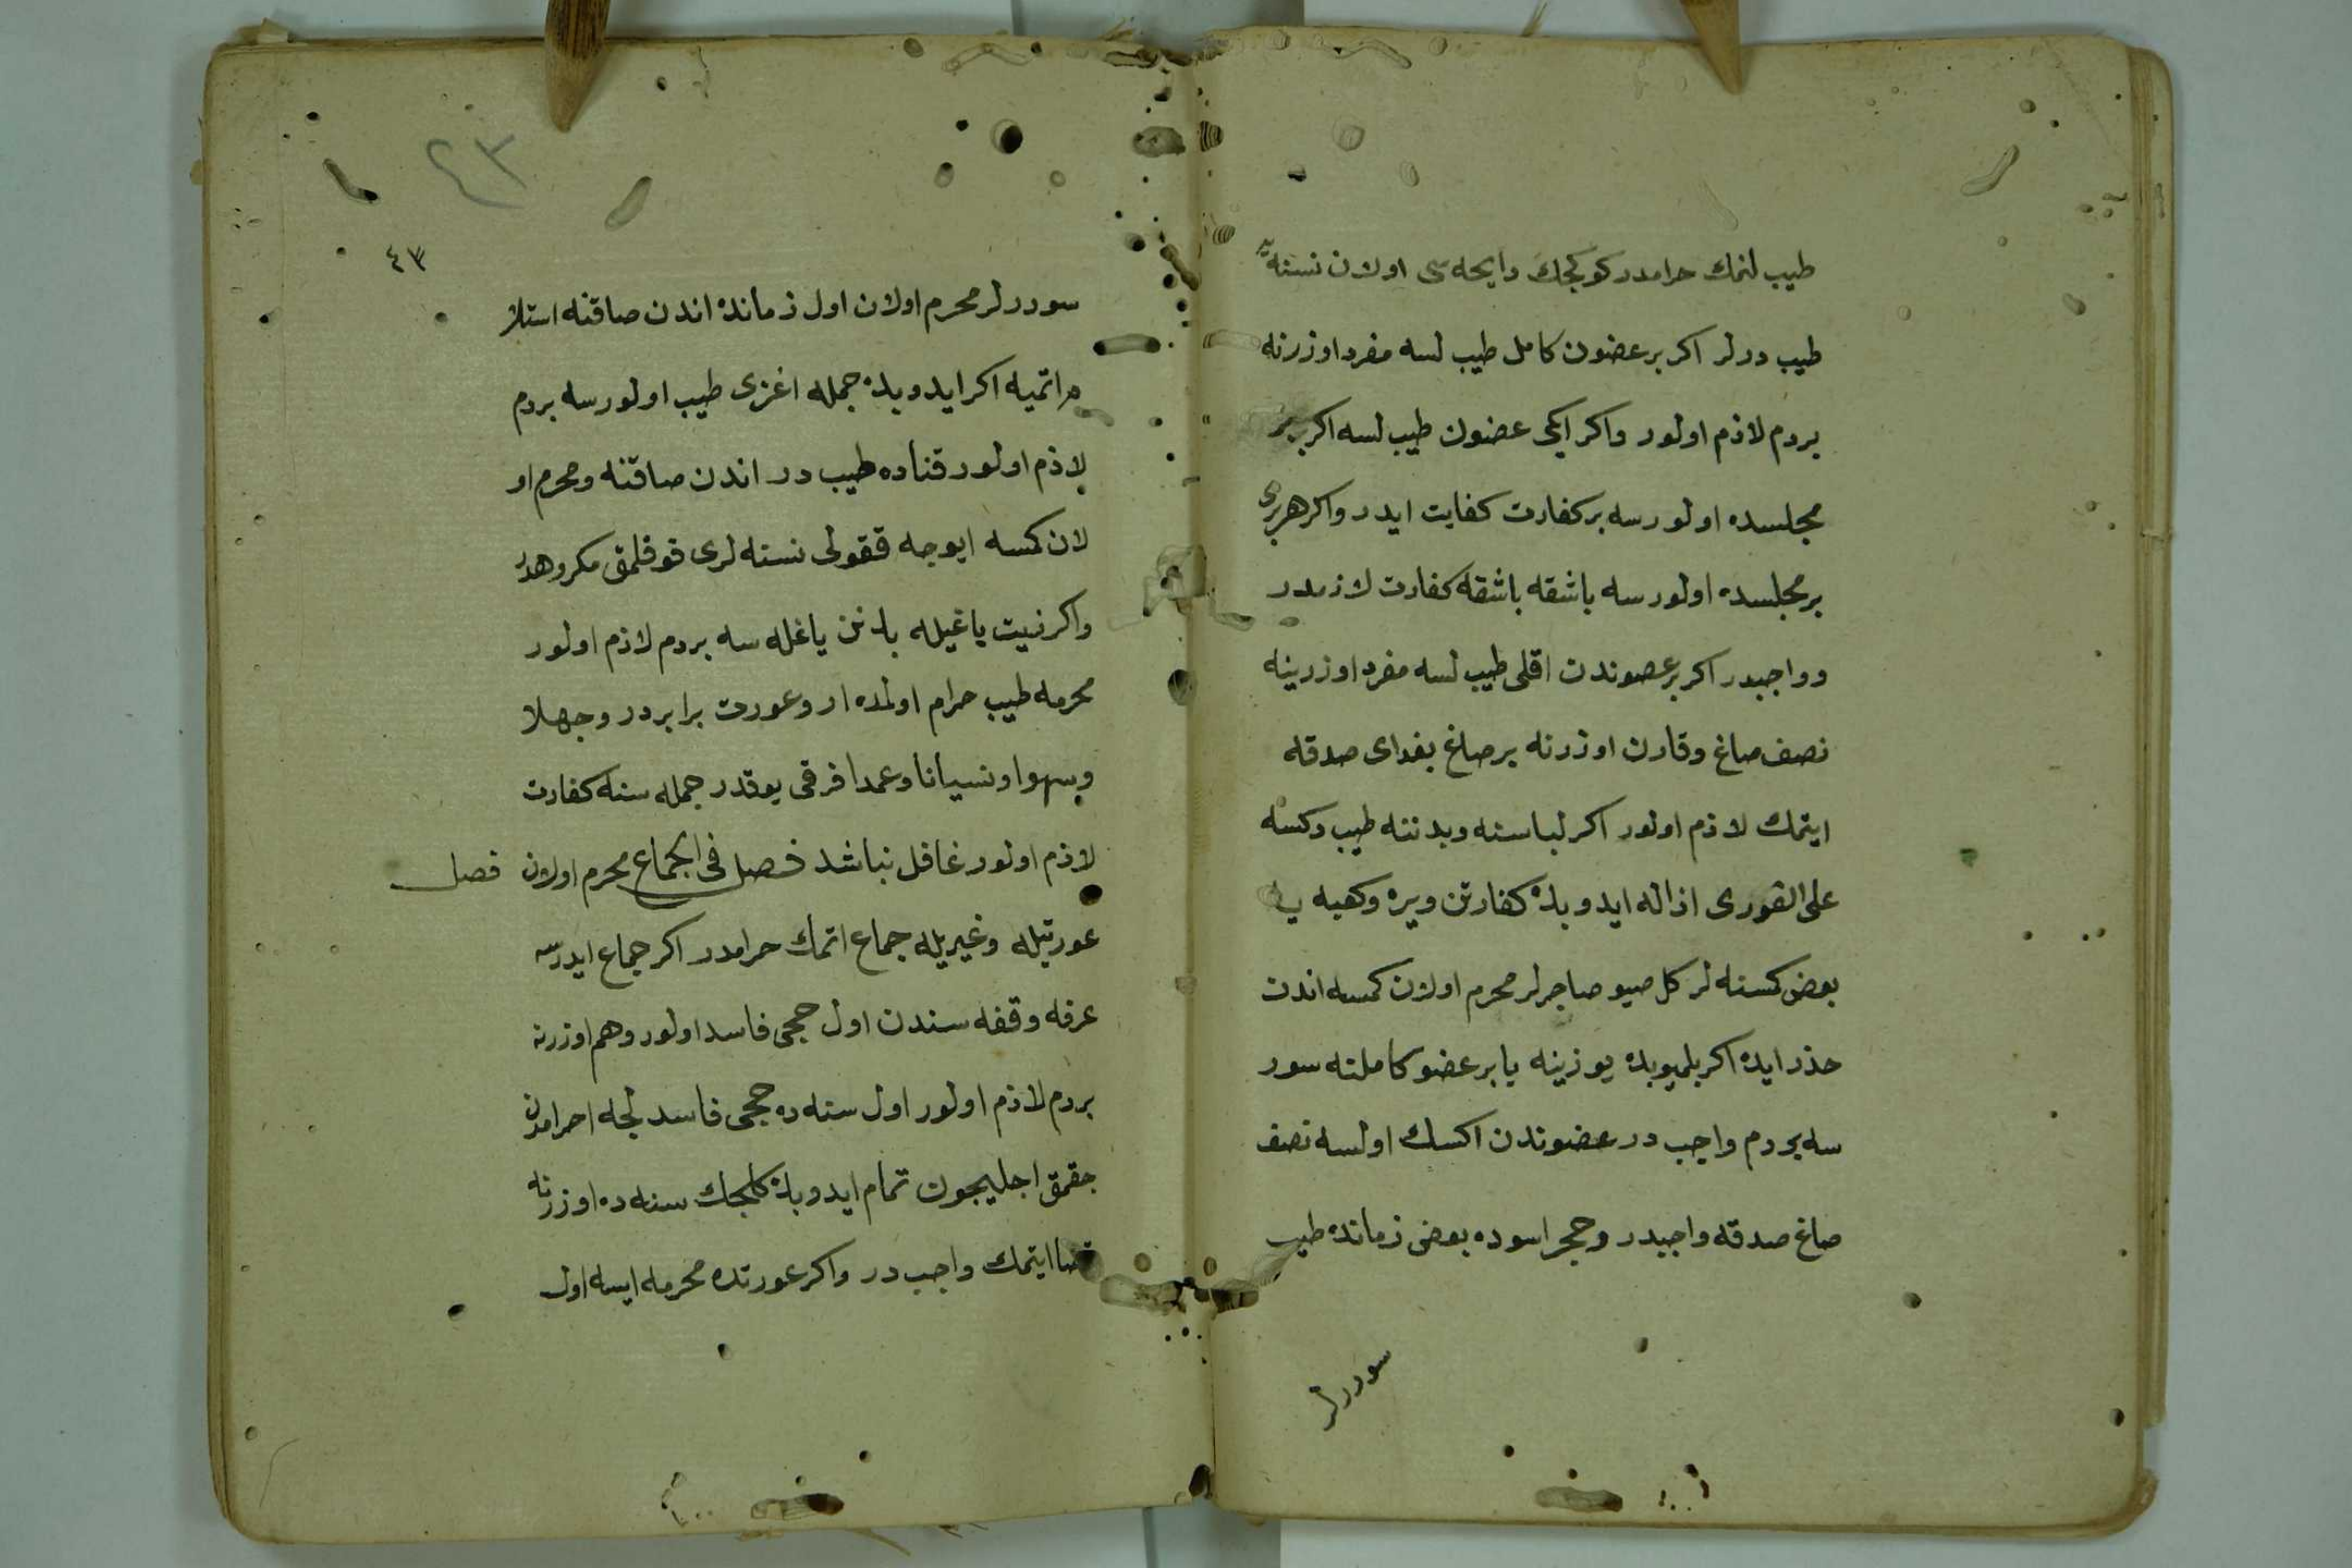 طيب لنمك حرامدر كوكجك رايحه سى اولان نسنه يه
طيب درلر اكر بر عضون كامل طيب لسه مفرد اوزرنه
بردم لازم اولور واكر ايكى عضون طيب لسه اكر بر
مجلسده اولورسه بر كفارت كفايت ايدر واكر هر برى
بر مجلسده اولورسه باشقه باشقه كفارت لازمدر
و واجبدر اكر بر عضوندن اقلى طيب لسه مفرد اوزرينه
نصف صاغ وقارن اوزرنه بر صاغ بغداى صدقه
ايتمك لازم اولور اكر لباسنه وبدننه طيب دكسه
على الفورى ازاله ايدوبده كفارتن ويره وكعبه يه
بعض كمسنه لر كل صيو صاجرلر محرم اولان كمسه اندن
حذر ايده اكر بلميوبده يوزينه يا بر عضو كاملنه سور
سه بردم واجب در عضوندن اكسك اولسه نصف
صاغ صدقه واجبدر وحجر اسوده بعض زمانده طيب
سوررلر
٤٣
٤٣
سوررلر محرم اولان اول زمانده اندن صاقنه استلا
م اتميه اكر ايدوبده جمله اغزى طيب اولورسه بردم
لازم اولور قناده طيب در اندن صاقنه ومحرم او
لان كمسه ايوجه ققولى نسنه لرى قوقلمق مكروهدر
واكر زيت ياغيله بدنن ياغله سه بردم لازم اولور
محرمه طيب حرام اولمده ار وعورت برابردر وجهلا
وسهوا ونسيانا وعمدا فرقى يوقدر جمله سنه كفارت
لازم اولور غافل نباشد فصل فى الجماع محرم اولان
فصل
عورتيله وغيريله جماع اتمك حرامدر اكر جماع ايدرسه
عرفه وقفه سندن اول حجى فاسد اولور وهم اوزرنه
بردم لازم اولور اول سنه ده حجى فاسد لجه احرامدن
جقمق اجليجون تمام ايدوبده كلجك سنه ده اوزرنه
قضا ايتمك واجب در واكر عورتده محرمه ايسه اول